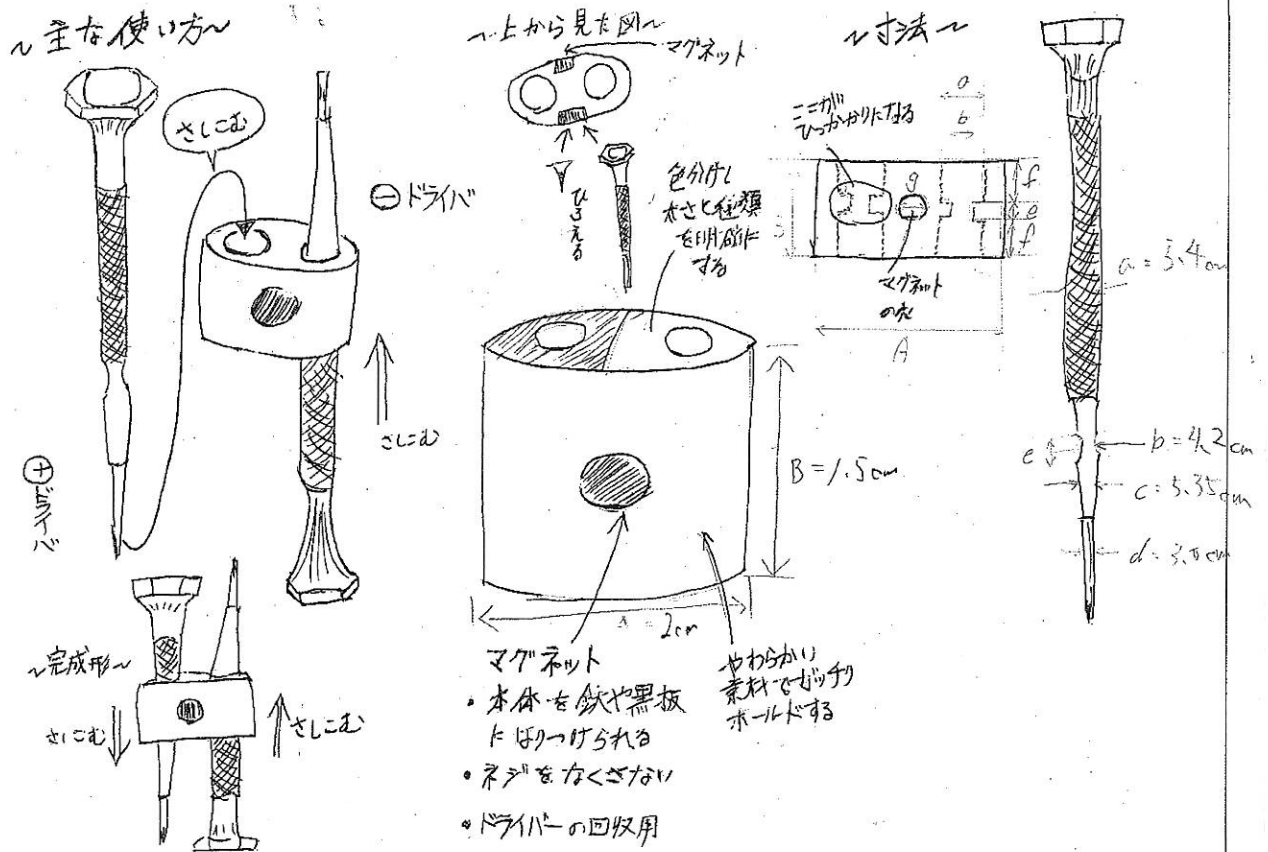 ~主な使い方~
さしこむ
⊖ドライバ
さしこむ
⊕ドライバ
~完成形~
さしこむ
さしこむ
~上から見た図~
マグネット
ひろえる
色分けし
太さと種類
を明確に
する
B=1.5cm
A=2cm
マグネット
・本体を鉄や黒板
にはりつけられる
・ネジをなくさない
・ドライバーの回収用
やわらかい
素材でガッチリ
ホールドする
~寸法~
ここが
ひっかかりになる
a
b
g
f
e
f
マグネット
の穴
A
a=3.4cm
e
b=4.2cm
c=3.35cm